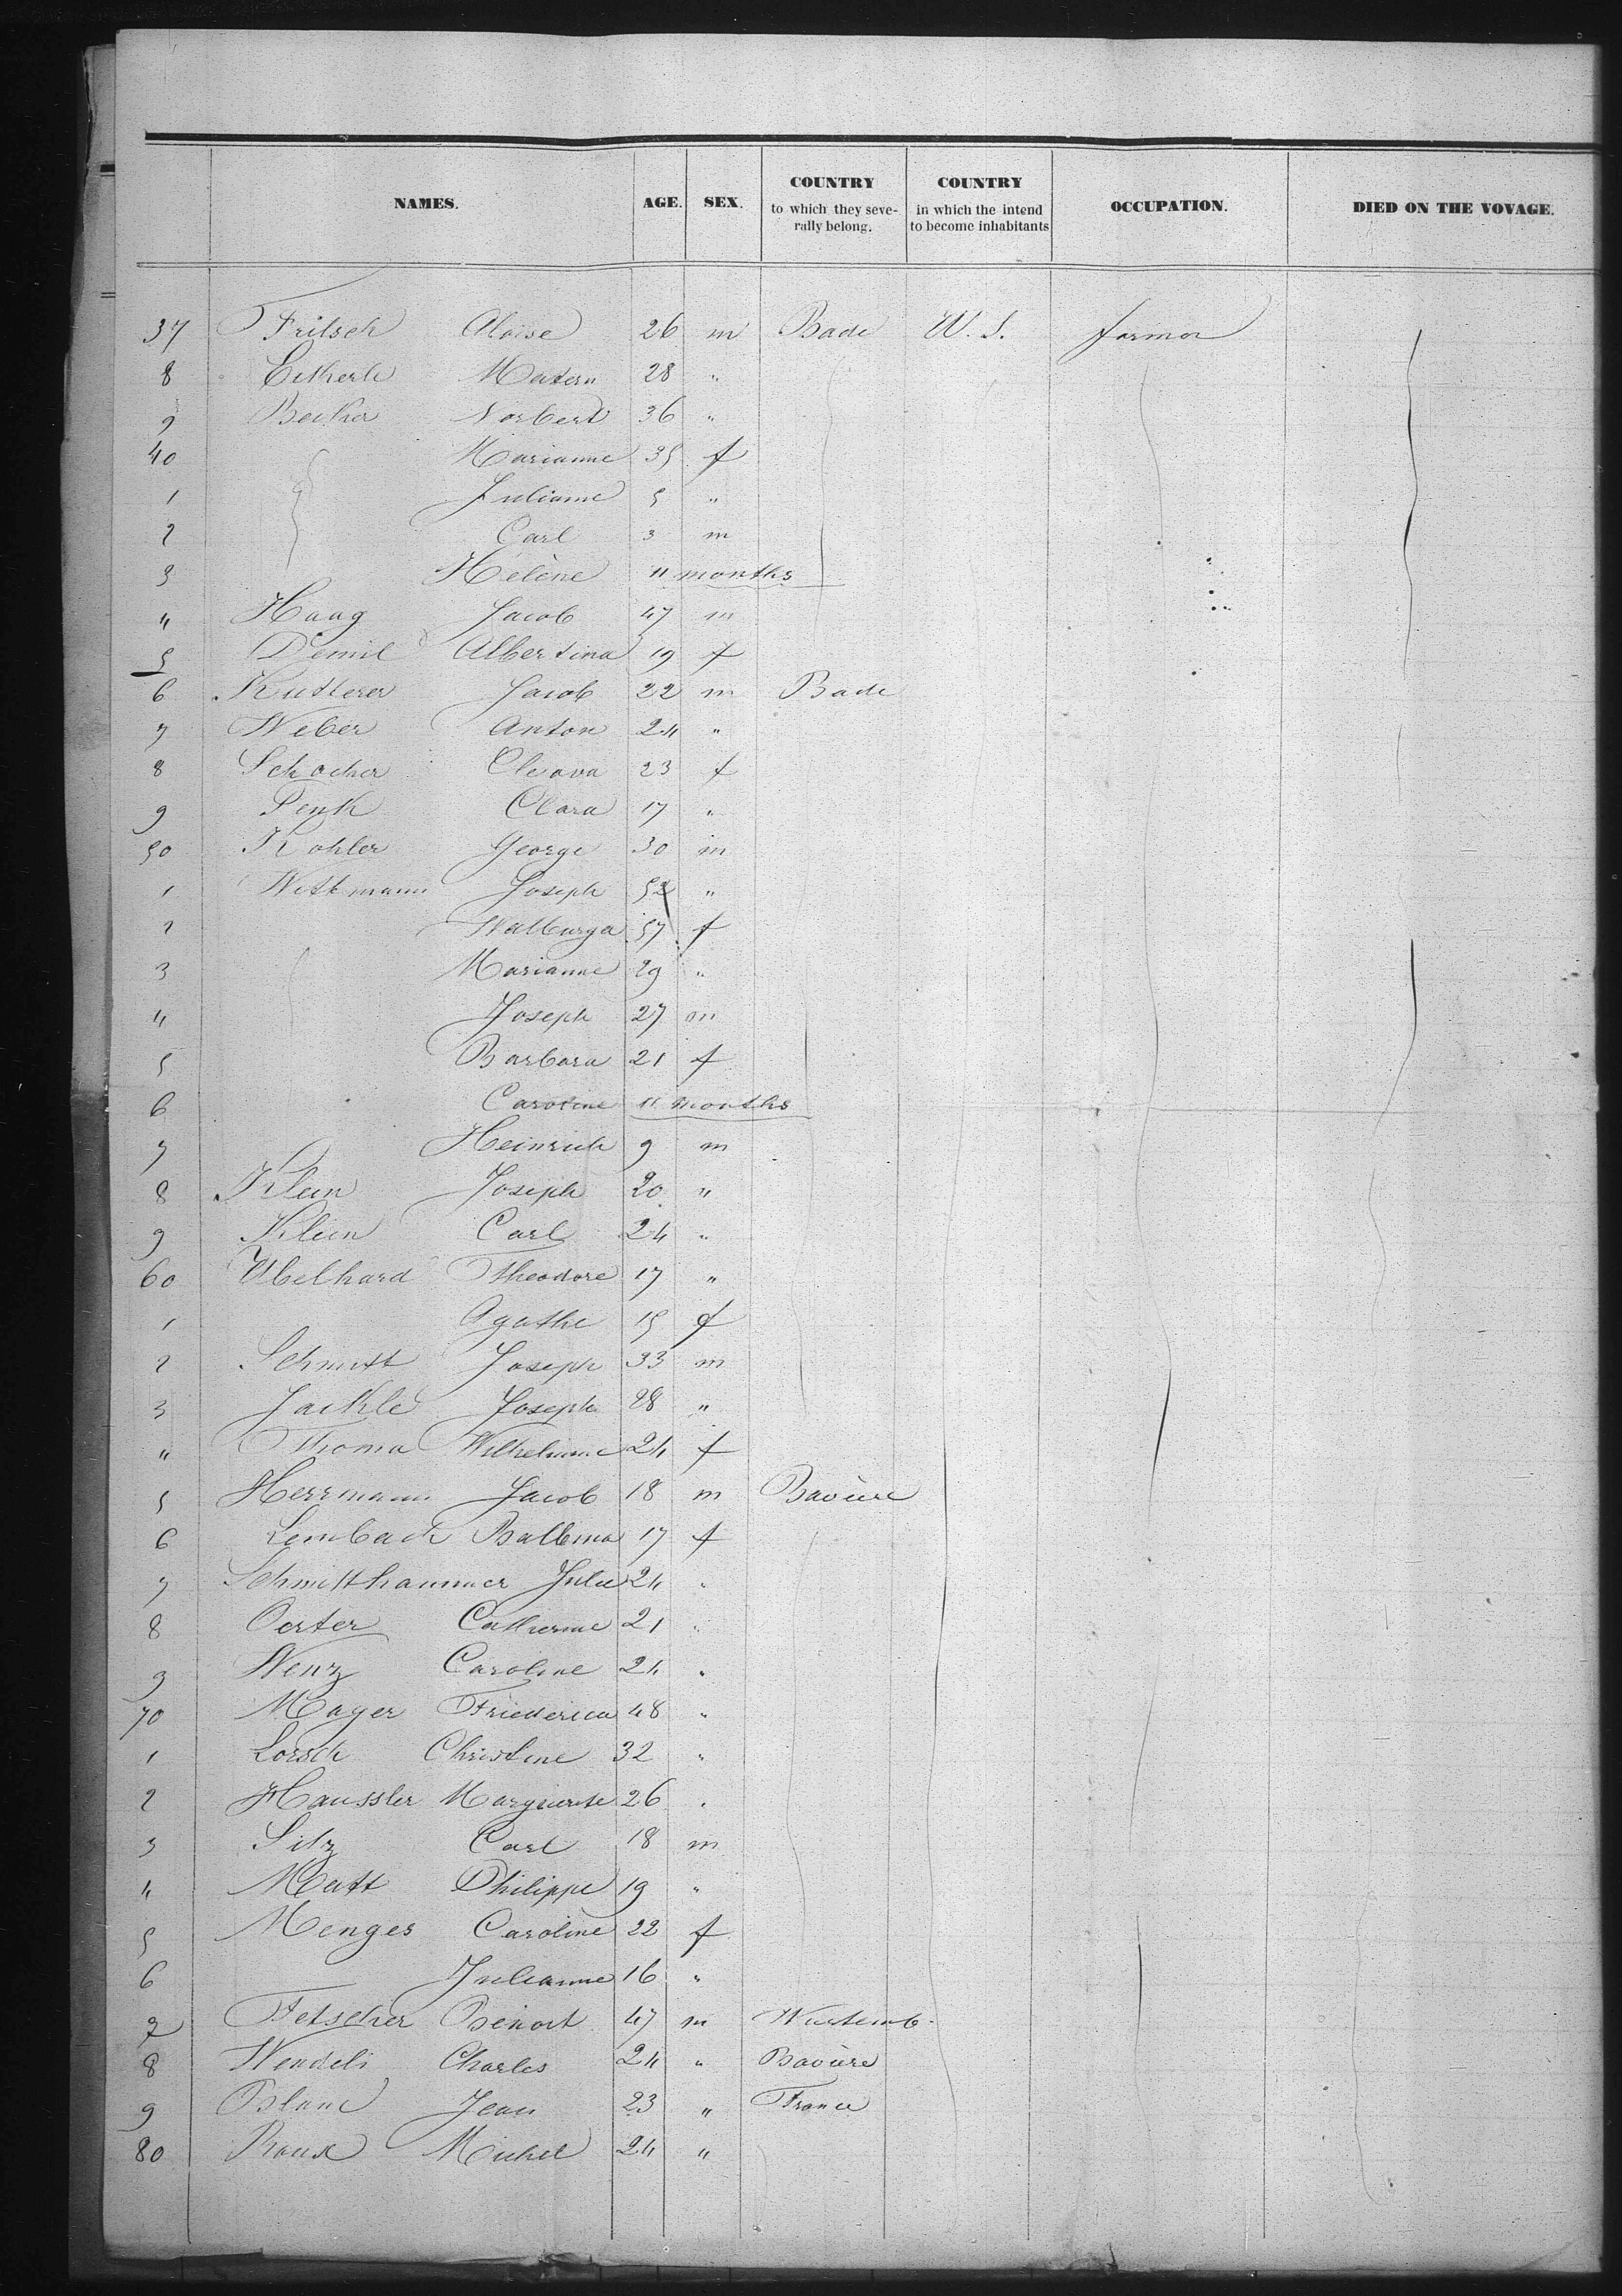 NAMES. AGE. SEX. COUNTRY to which they severally belong. COUNTRY in which the intend to become inhabitants OCCUPATION. DIED ON THE VOVAGE.
37 Fritsch Aloise 26 m Bade U. S. farmor
8 Matern 28 "
9 Becker Norbert 36 "
40 Marianne 35 f
1 Julianne 5 "
2 Carl 3 m
3 Hélène 11 months
4 Haag Jacob 47 m
5 Albertina 19 f
6 Kutterer Jacob 22 m Bade
7 Weber Anton 24 "
8 Schocher 23 f
9 Penk Clara 17 "
50 Kohler George 30 m
1 Joseph 52 "
2 Walburga 57 f
3 Marianne 29 "
4 Joseph 27 m
5 Barbara 21 f
6 Caroline 11 months
7 Heinrich 9 m
8 Klein Joseph 20 "
9 Klein Carl 24 "
60 Ubelhard Theodore 17 "
1 Agathe 15 f
2 Schmitt Joseph 33 m
3 Jackle Joseph 28 "
4 Thoma Wilhelmine 24 f
5 Herrmann Jacob 18 m Bavière
6 Lembach 17 f
7 Schmitthammer Julie 24 "
8 Oerter Catherine 21 "
9 Wenz Caroline 24 "
70 Mayer Friederica 48 "
1 Lorsch Christine 32 "
2 Haussler Marguerite 26 "
3 Sitz Carl 18 m
4 Matt Philippe 19 "
5 Menges Caroline 22 f
6 Julianne 16 "
7 Fetscher Benoit 47 m Wurtemb.
8 Wendeli Charles 24 " Bavière
9 Blanc Jean 23 " France
80 Roux Michel 24 "